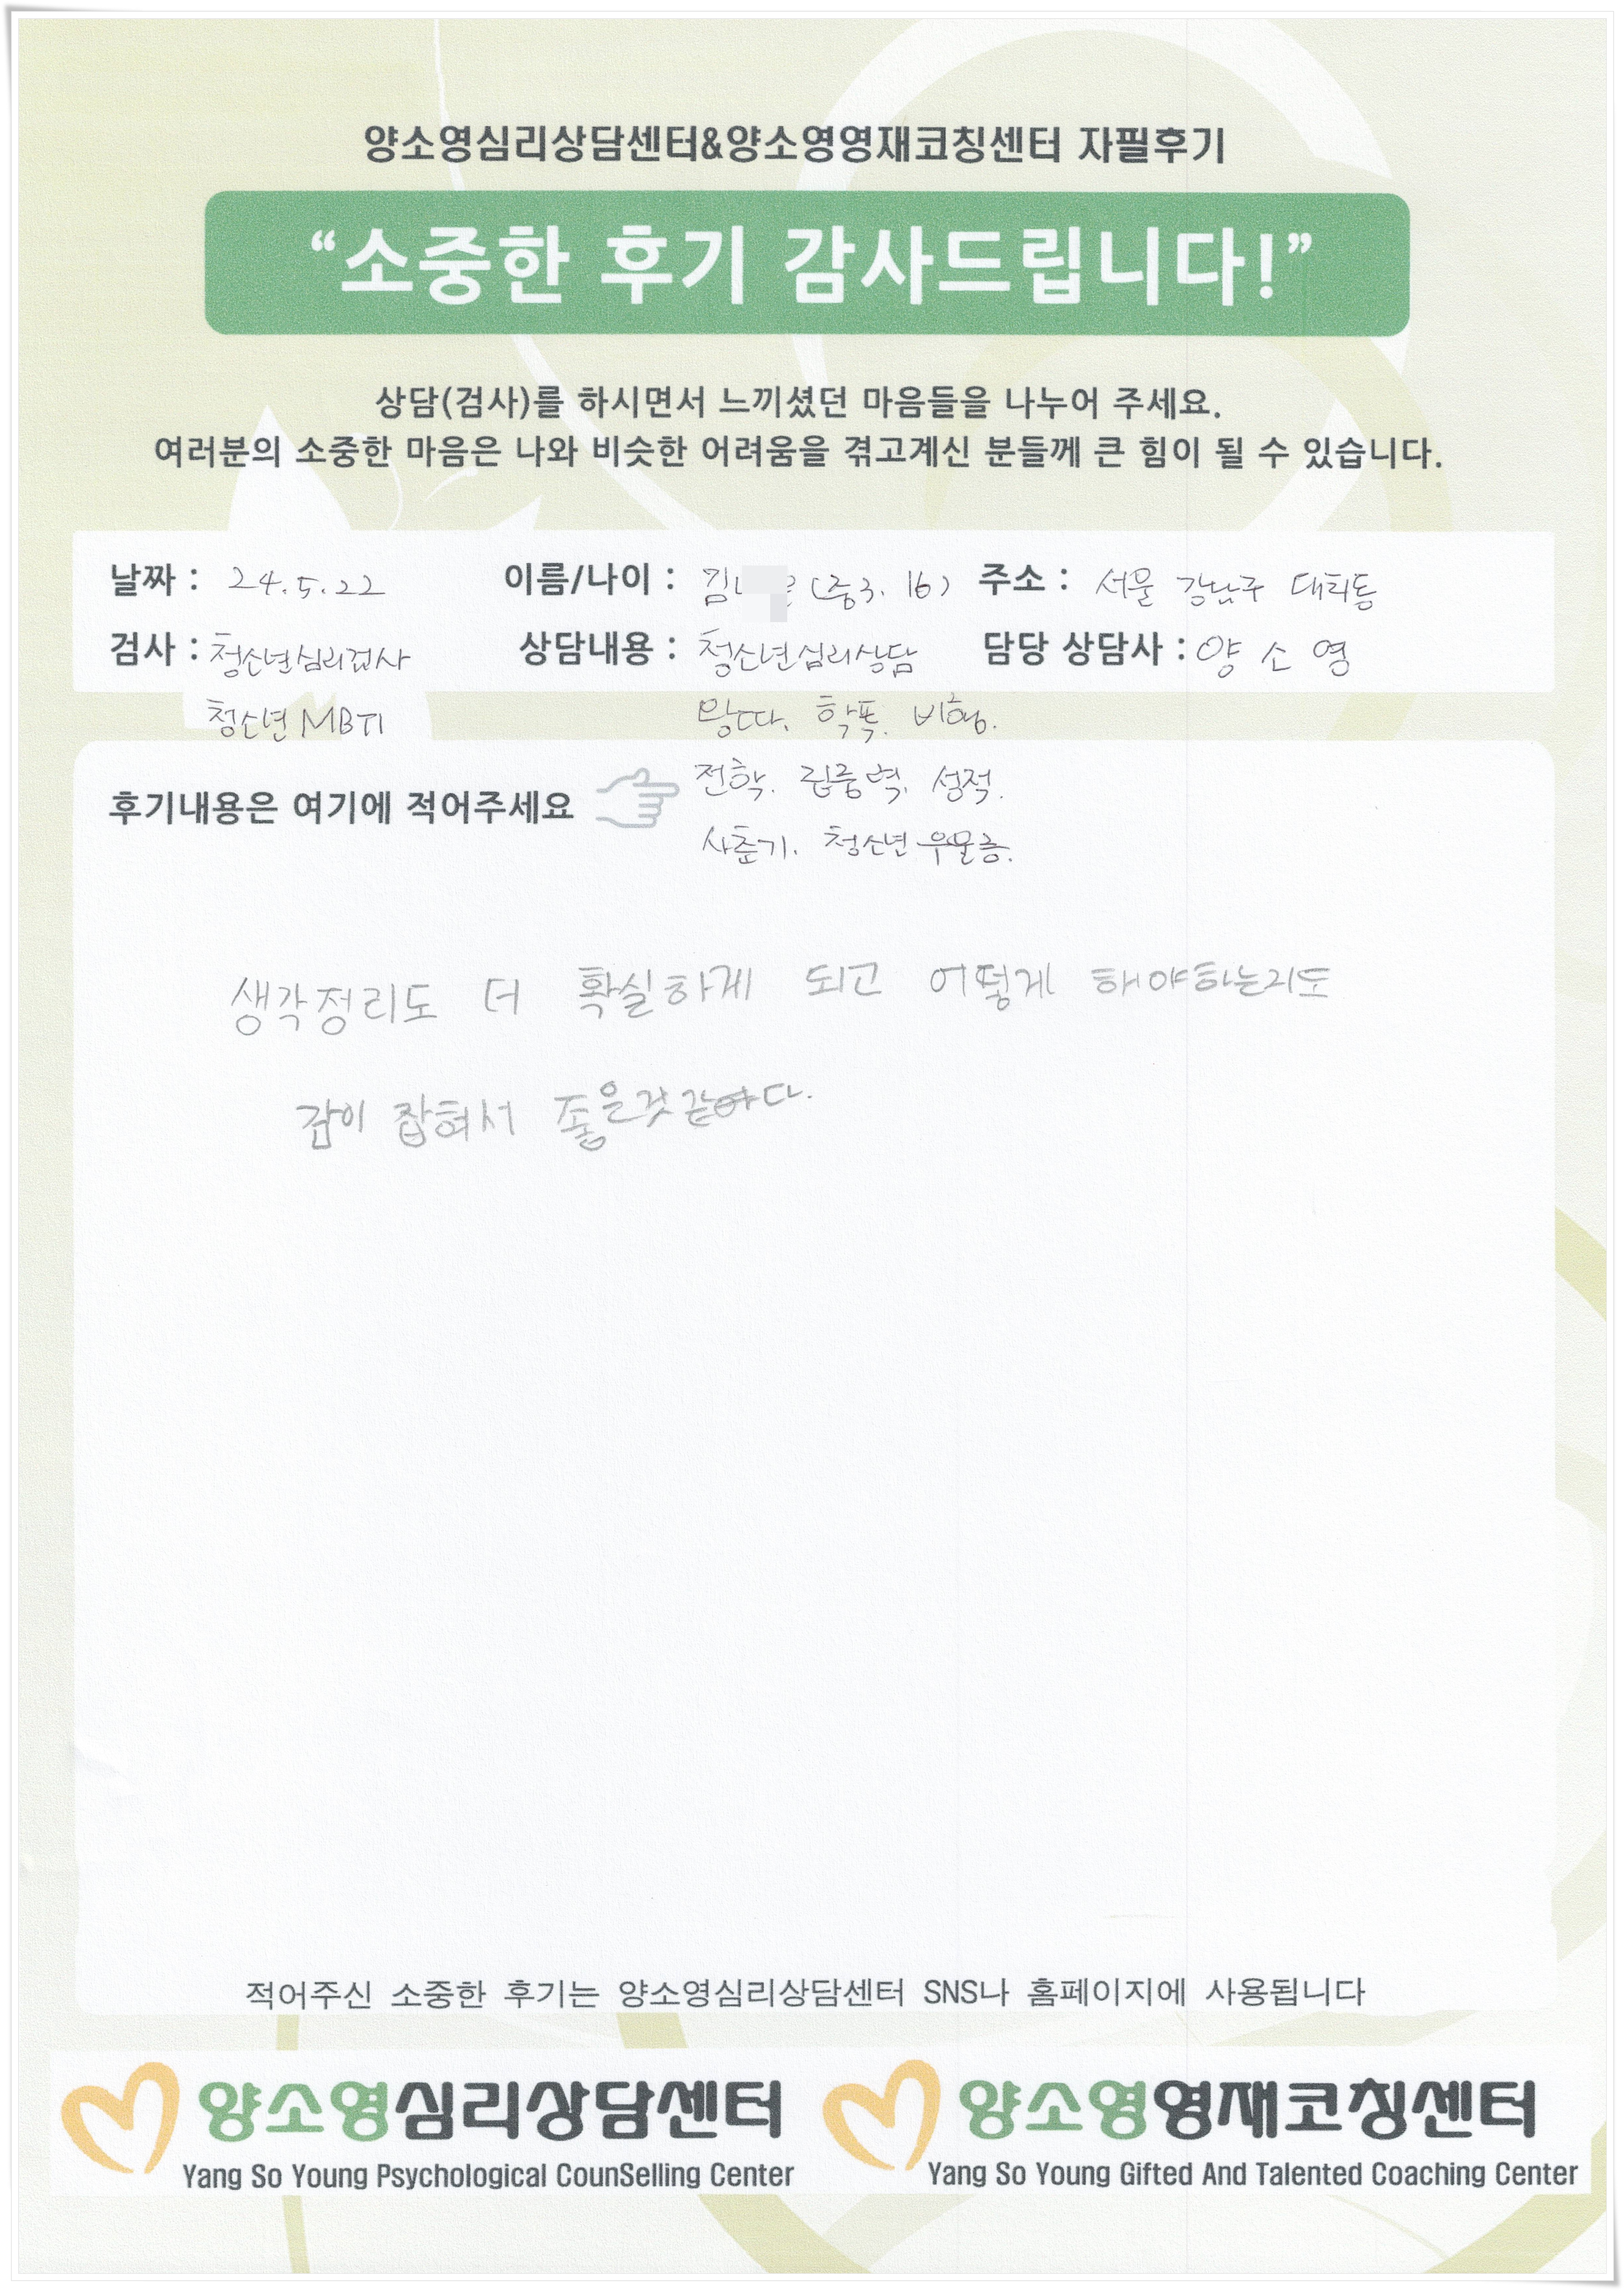 양소영심리상담센터&양소영영재코칭센터 자필후기
“소중한 후기 감사드립니다!”
상담(검사)를 하시면서 느끼셨던 마음들을 나누어 주세요.
여러분의 소중한 마음은 나와 비슷한 어려움을 겪고계신 분들께 큰 힘이 될 수 있습니다.
날짜 : 24.5.22 이름/나이 : 김 (중3. 16) 주소 : 서울 강남구 대치동
검사 : 청소년심리검사 상담내용 : 청소년심리상담 담당 상담사 : 양 소 영
청소년 MBTI 왕따. 학폭. 비행.
전학. 집중력. 성적.
후기내용은 여기에 적어주세요
사춘기. 청소년 우울증.
생각정리도 더 확실하게 되고 어떻게 해야하는지도
감이 잡혀서 좋은것 같다.
적어주신 소중한 후기는 양소영심리상담센터 SNS나 홈페이지에 사용됩니다
양소영심리상담센터 양소영영재코칭센터
Yang So Young Psychological CounSelling Center Yang So Young Gifted And Talented Coaching Center